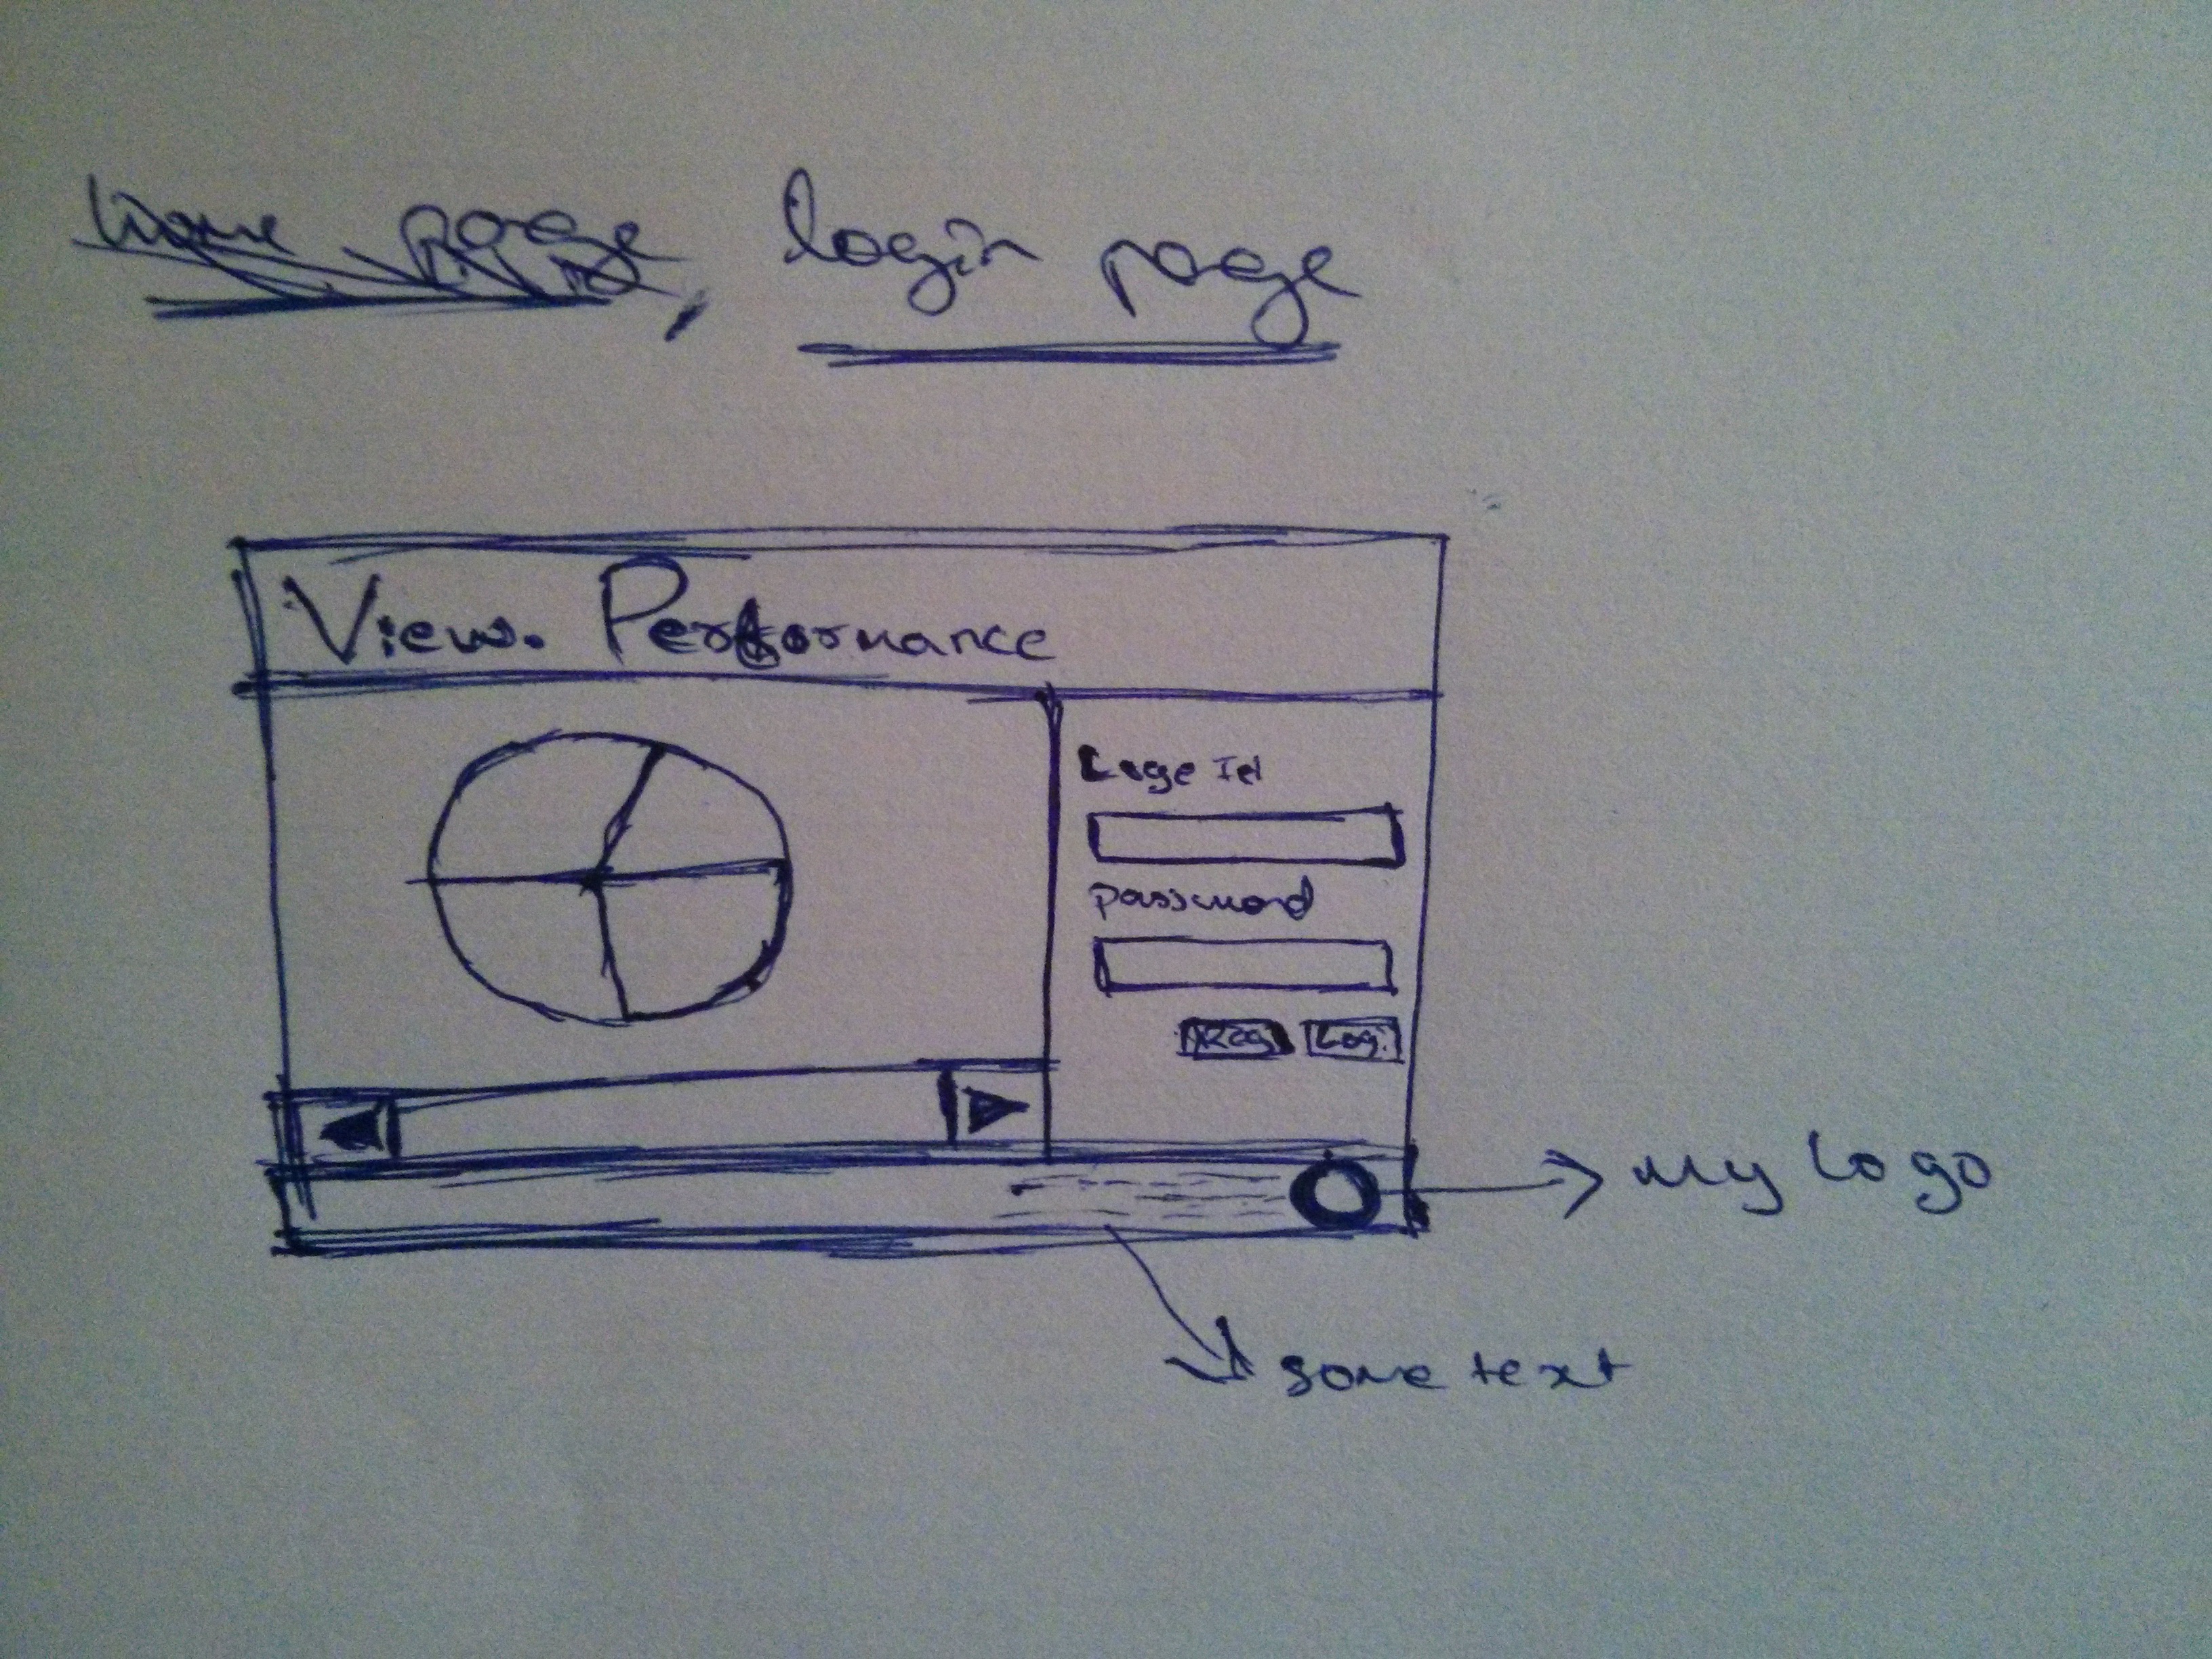 home page, login page
View. Performance
Loge Id
password
Reg Logi
my logo
some text